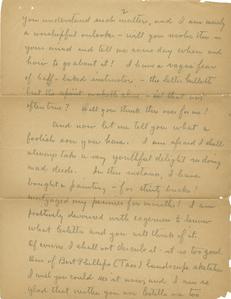 2
you understand such matters, and I am merely
a worshipful onlooker - will you revolve this in
your mind and tell me some day when and
how to go about it! I have a vague fear
of half-baked instructor - the letter killeth
but the spirit maketh alive - isn't that
often true? Will you think this over for me!
And now let me tell you what a
foolish son you have. I am afraid I shall
always take a very youthful delight in doing
mad deeds. In this instance, I have
bought a painting - for thirty bucks!
mortgaged my pennies for months! I am
positively devoured with eagerness to know
what Colella and you will think of it.
Of course I shall not describe it - it is too good.
One of Bert Phillips (Taos) landscape sketches
I wish you could see it now, and I am so
glad that neither you nor Colella was too